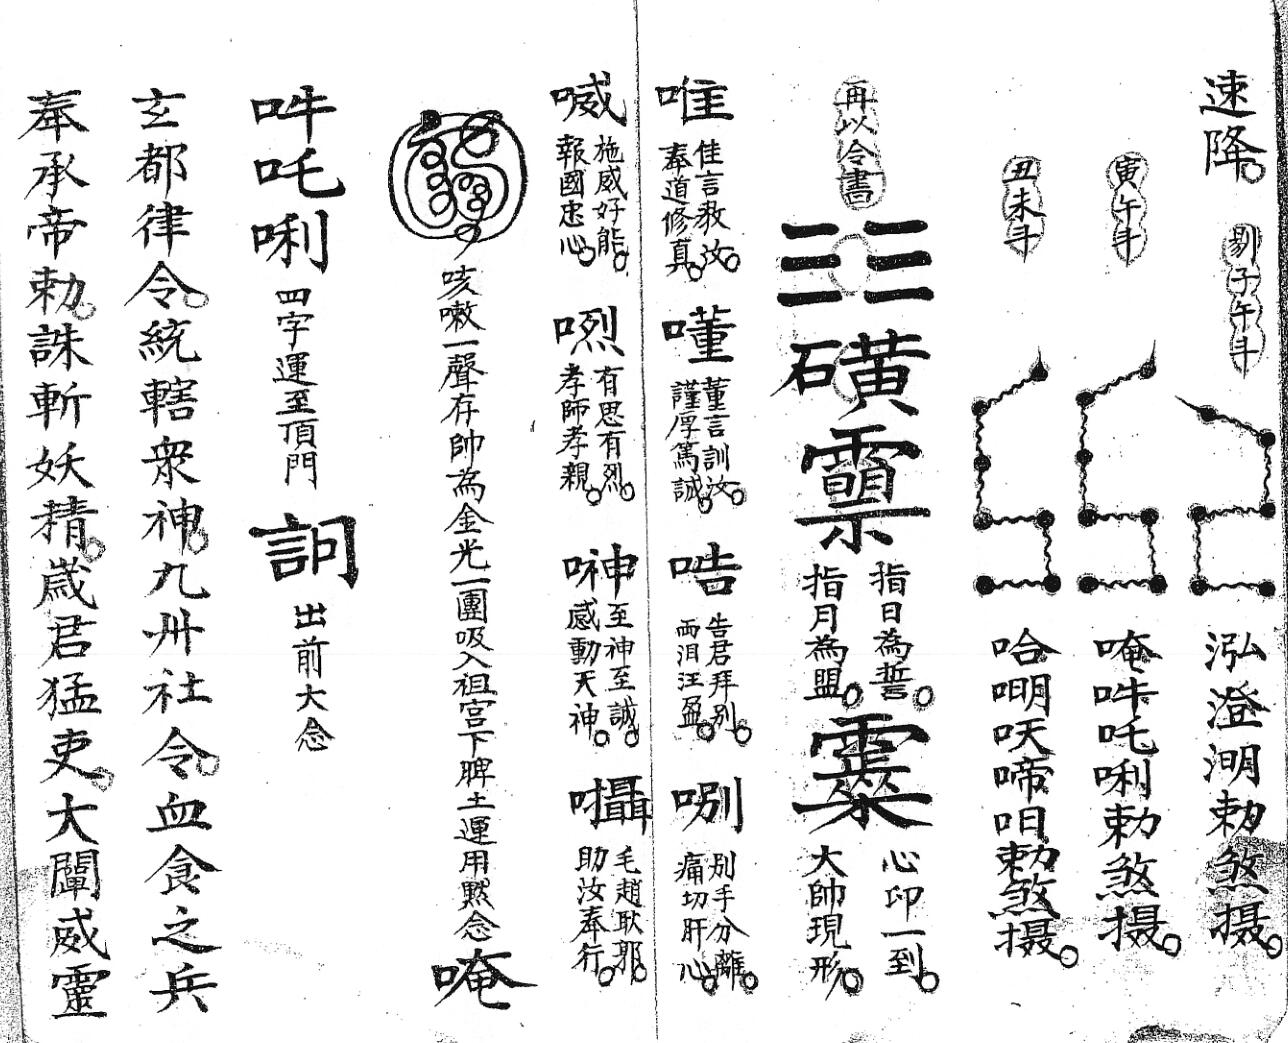 速降
剔子午斗
泓澄淜勅煞摄
寅午斗
唵吽吒唎勅煞摄
丑未斗
哈㖫呋啼㕷勅煞摄
再以令書
磺
指日為誓
指月為盟
心印一到
大帥現形
唯
佳言教汝
奉道修真
嗹
董言訓汝
謹厚篤誠
哠
告君拜別
兩泪汪盈
唎
别手分離
痛切肝心
喴
施威好能
報國忠心
㘁
有思有烈
孝師孝親
𠶸
至神至誠
感動天神
囁
毛趙耿郭
助汝奉行
咳嗽一聲存帥為金光一團吸入祖宫下脾土運用黙念唵
吽吒唎
四字運至頂門
訶
出前大念
玄都律令統轄衆神九州社令血食之兵
奉承帝勅誅斬妖精歲君猛吏大闡威靈